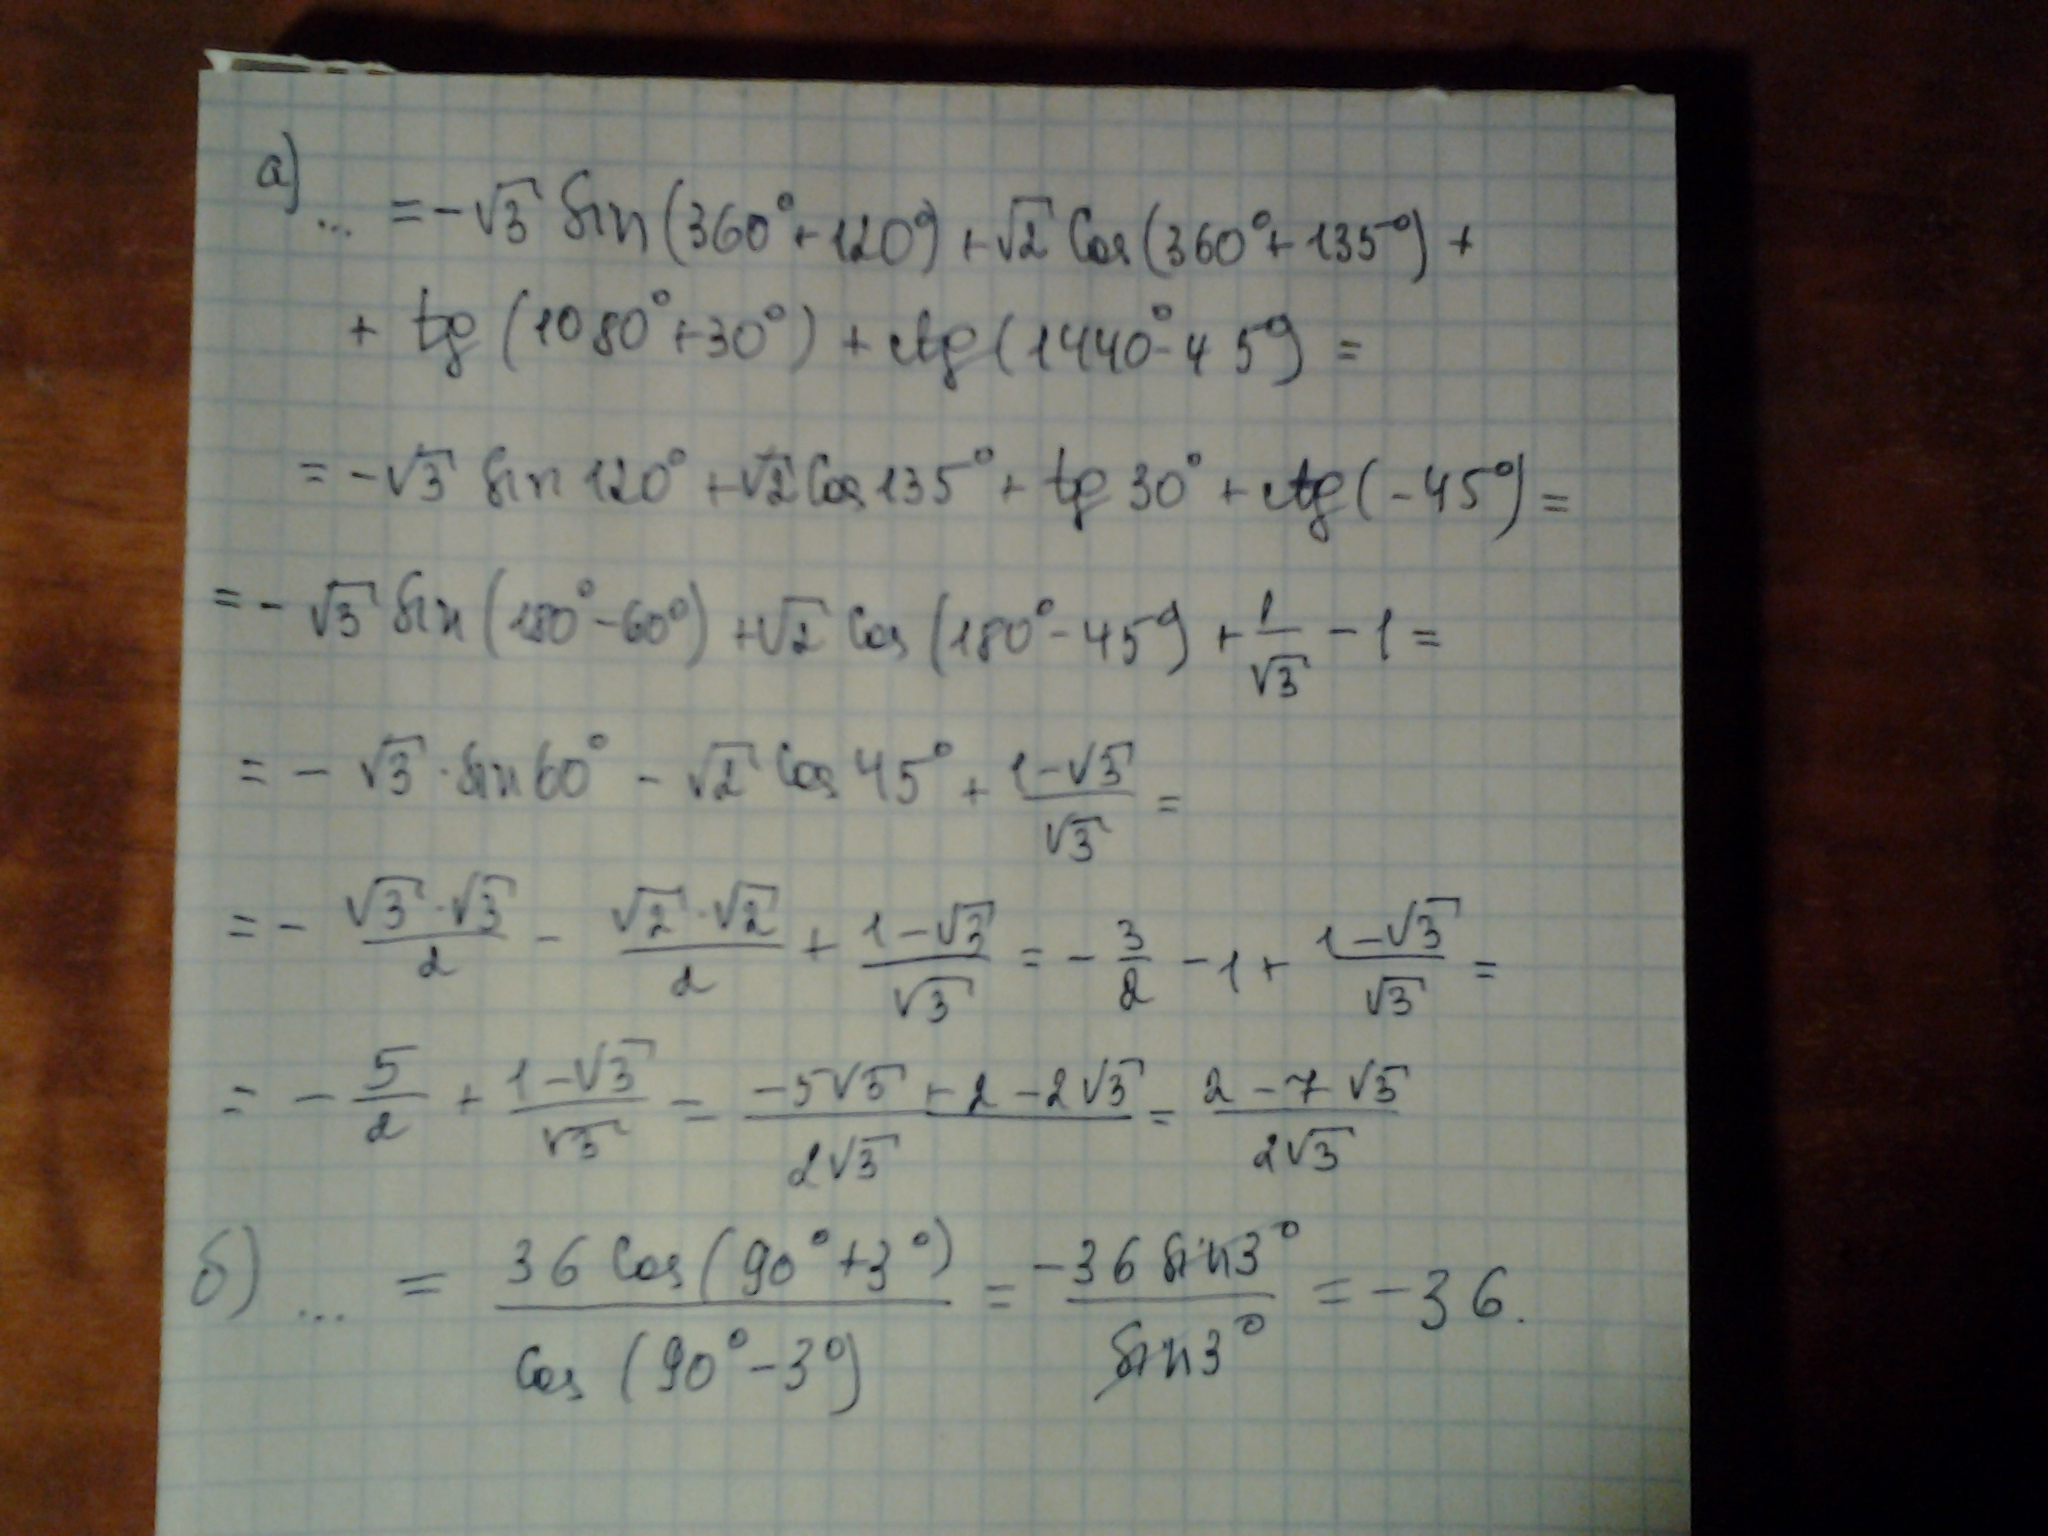 а) ... = -√3 Sin(360°+120°) + √2 Cos(360°+135°) +
+ tg(1080°+30°) + ctg(1440°-45°) =
= -√3 Sin 120° + √2 Cos 135° + tg 30° + ctg(-45°) =
= -√3 Sin(180°-60°) + √2 Cos(180°-45°) + 1/√3 - 1 =
= -√3 · Sin 60° - √2 Cos 45° + (1-√3)/√3 =
= - (√3·√3)/2 - (√2·√2)/2 + (1-√3)/√3 = - 3/2 - 1 + (1-√3)/√3 =
= - 5/2 + (1-√3)/√3 = (-5√3 + 2 - 2√3)/(2√3) = (2 - 7√3)/(2√3)
б) ... = (36 Cos(90°+3°))/(Cos(90°-3°)) = (-36 Sin3°)/(Sin3°) = -36.